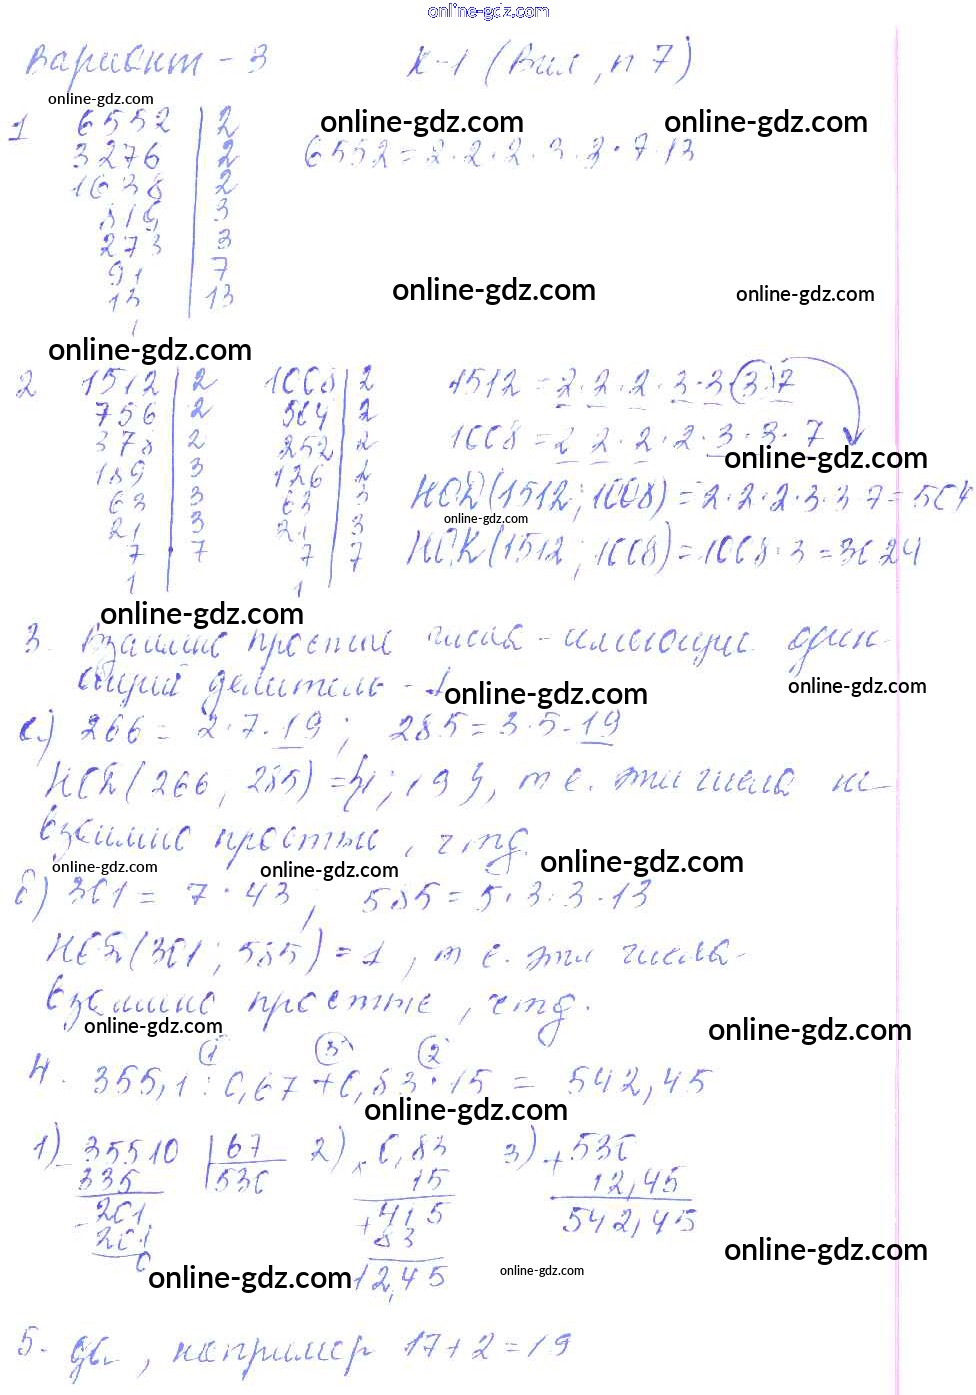 online-gdz.com
Вариант - 3 К-1 (Вил, п 7)
online-gdz.com
1 6552 | 2 online-gdz.com online-gdz.com
3276 | 2 6552 = 2·2·2·3·3·7·13
1638 | 2
819 | 3
273 | 3
91 | 7
13 | 13 online-gdz.com online-gdz.com
1
online-gdz.com
2 1512 | 2 1008 | 2 1512 = 2·2·2·3·3·3·7
756 | 2 504 | 2
378 | 2 252 | 2 1008 = 2·2·2·2·3·3·7
189 | 3 126 | 2 online-gdz.com
63 | 3 63 | 3 НОД(1512; 1008) = 2·2·2·3·3·7 = 504
21 | 3 21 | 3 online-gdz.com
7 | 7 7 | 7 НОК(1512; 1008) = 1008·3 = 3024
1 1
online-gdz.com
3. Взаимно простые числа - имеющие один
общий делитель - 1
online-gdz.com online-gdz.com
а) 266 = 2·7·19; 285 = 3·5·19
НОД(266; 285) = {1; 19}, т е. эти числа не
взаимно простые, чтд.
online-gdz.com online-gdz.com online-gdz.com
б) 301 = 7·43; 585 = 5·3·3·13
НОД(301; 585) = 1, т е. эти числа -
взаимно простые, чтд.
online-gdz.com online-gdz.com
1 3 2
4. 355,1 : 0,67 + 0,83·15 = 542,45
online-gdz.com
1) - 35510 | 67 2) × 0,83 3) + 530
335 | 530 15 12,45
- 201 + 415 542,45
201 83
0 12,45
online-gdz.com online-gdz.com online-gdz.com
5. Да, например 17 + 2 = 19